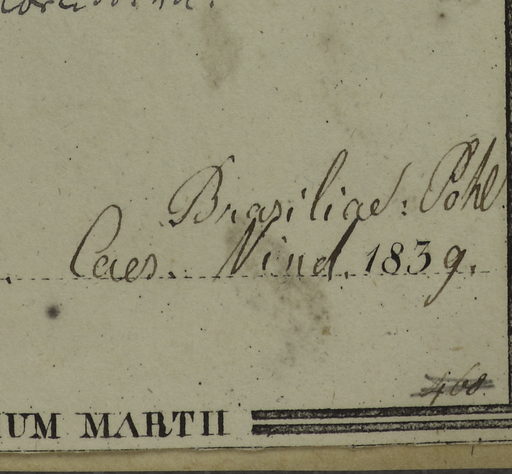 Brasiliae: Pohl
Caes. Vind. 1839.
460
IUM MARTII